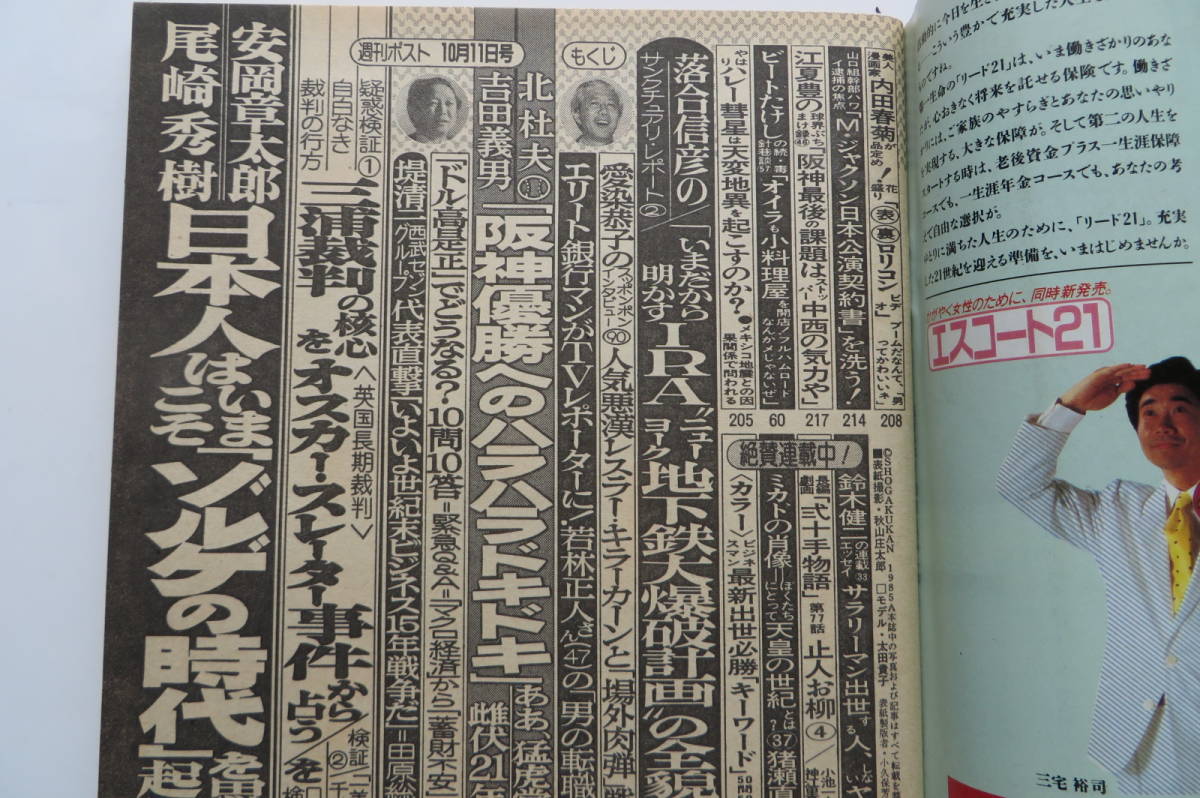 週刊ポスト 10月11日号
もくじ
美人漫画家 内田春菊が品定め! 花盛り 表裏ロリコン ビデオ ブームだなんて、“男ってかわいいネ” 208
山口組幹部ハワイ逮捕の焦点 「M・ジャクソン日本公演契約書」を洗う! 214
江夏豊の 球界ぶちまけ録 「阪神最後の課題はストッパー中西の気力や」 217
ビートたけしの続・毒針巷談 57 「オイラも小料理屋を開店、フルハムロードなんかメじゃないぜ」 60
やはりハレー彗星は大変地異を起こすのか? ●メキシコ地震との因果関係で問われる 205
落合信彦の サンクチュアリ・レポート② 「いまだから明かすIRA“ニューヨーク地下鉄大爆破計画”の全貌
愛染恭子のスッポンポンインタビュー 90 人気悪漢レスラー・キラー・カーンと「場外肉弾
エリート銀行マンがTVレポーターに! 若林正人さん(47)の「男の転職
北杜夫 吉田義男 「阪神優勝へのハラハラドキドキ」 ああ、猛虎 雌伏21年
「ドル高是正」でどうなる? 10問10答 =緊急Q&A=「マクロ経済」から「蓄財不安
堤清二 西武セゾングループ 代表直撃「いよいよ世紀末ビジネス15年戦争だ」=田原
疑惑検証① 自白なき裁判の行方 三浦裁判の核心〈英国長期裁判〉をオスカー・スレーター事件から占う/検証②
安岡章太郎 尾崎秀樹 日本人はいまこそ「ゾルゲの時代」を思 起
絶賛連載中!
鈴木健二の連載エッセイ 33 サラリーマン出世する人、しな
長編劇画 「弐十手物語」 第77話 止人お柳④ 小池一
ミカドの肖像=ぼくたちにとって天皇の世紀とは? 37 猪瀬直
〈カラー〉ビジネスマン 最新出世必勝「キーワード」
©SHOGAKUKAN 1985 A本誌中の写真および記事はすべて転載を
■表紙撮影・秋山庄太郎 □モデル・太田貴子 表紙製版者・小久保
動的に今日を生き
こういう豊かで充実した人生を
のですね。
一生命の「リード21」は、いま働きざかりのあな
たが、心おきなく将来を託せる保険です。働きざ
かりには、ご家族のやすらぎとあなたの思いやり
を実現する、大きな保障が。そして第二の人生を
スタートする時は、老後資金プラス一生涯保障
コースでも、一生涯年金コースでも、あなたの考
えで自由な選択が。
ゆとりに満ちた人生のために、「リード21」。充実
した21世紀を迎える準備を、いまはじめませんか。
かがやく女性のために、同時新発売。
エスコート21
三宅 裕司